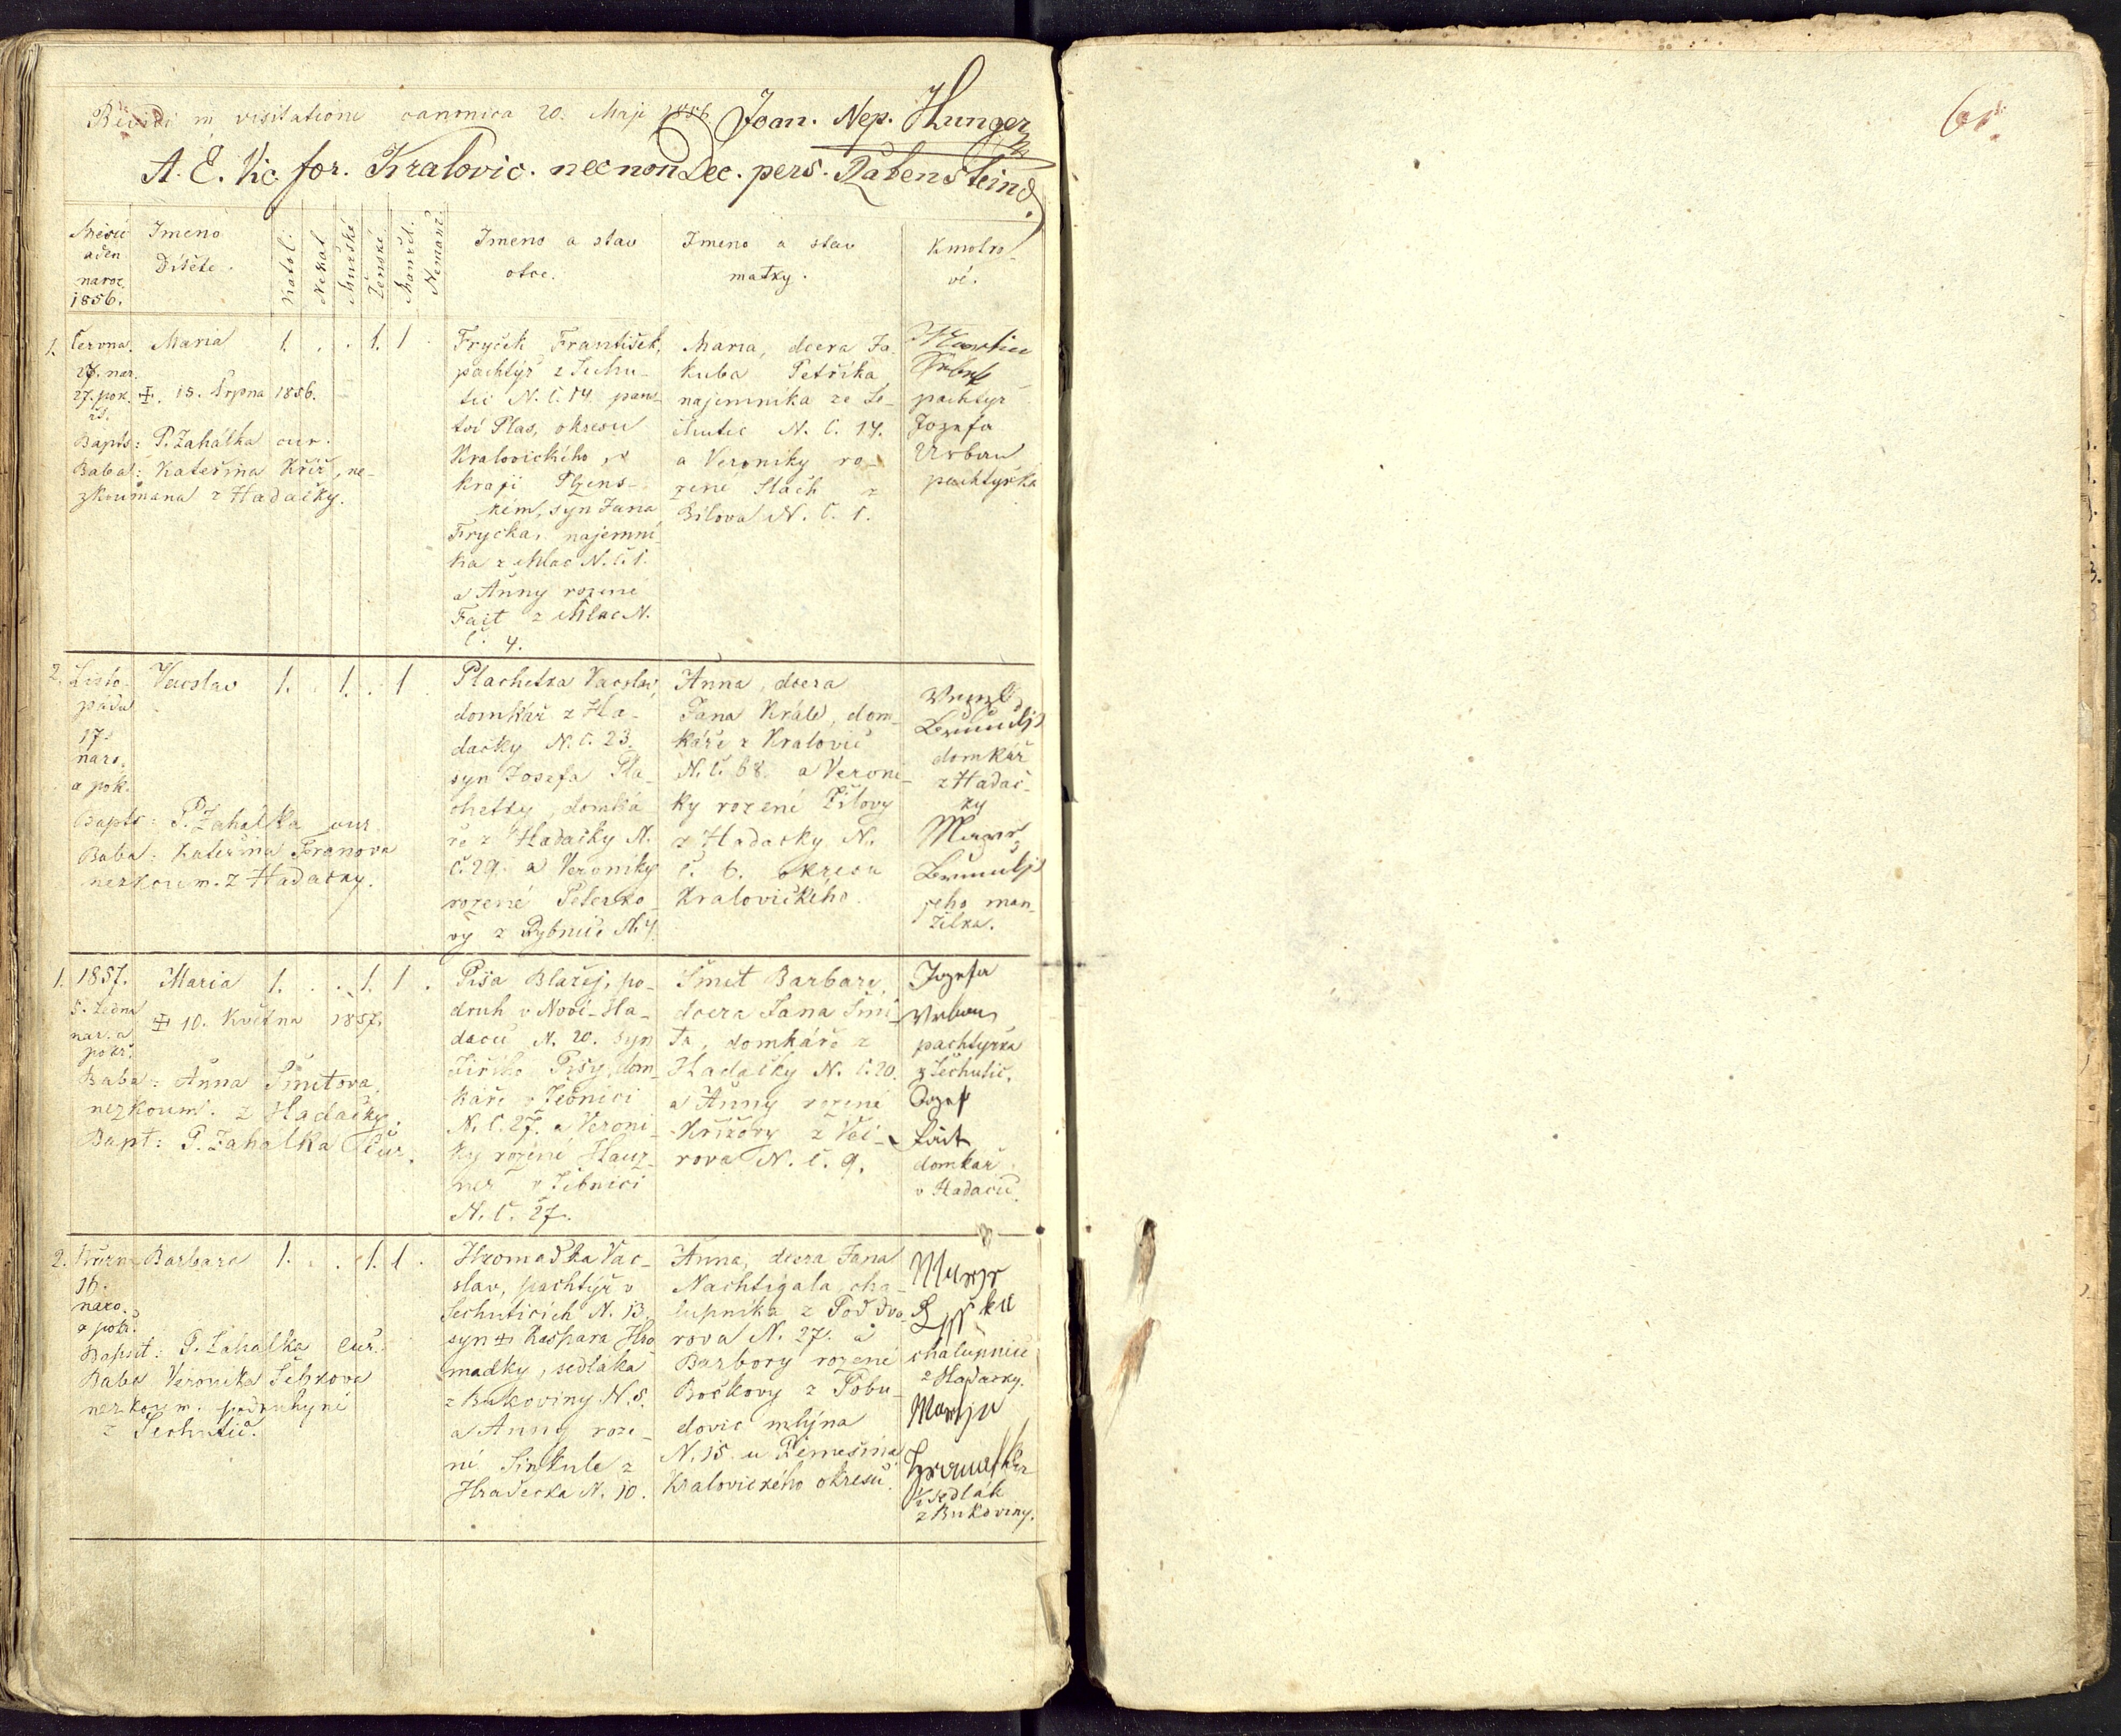 Revidi in visitatione canonica 20. Maji 1856 Joan. Nep. Hunger
A. E. Vic. for. Kralovic. necnon Dec. pers. Rabenstein.
61.
Měsíc
a den
naroz.
1856.
Jmeno
Dítěte.
Katol:
Nekat.
Mužské
Ženské
Manžel.
Nemanž.
Jmeno a stav
otce.
Jmeno a stav
matky.
Kmotro-
vé.
1.
Června.
nar.
27. pok.
Maria 1. . . 1. 1 .
‡. 15. Srpna 1856.
Bapts: P. Zahálka cur.
Baba: Kateřina Kříž, ne-
zkoumana z Hadačky.
Fryček František,
pachtýř z Sechu-
tic N. č. 14. pans-
tví Plas, okresu
Kralovického, v
kraji Plzens-
kém, syn Jana
Frycka, najemní-
ka z Mlac N. č. 1.
a Anny rozené
Fait z Mlac N.
č. 4.
Maria, dcera Ja-
kuba Petříka
najemníka ze Se-
chutic N. č. 14.
a Veroniky ro-
zené Stach z
Bílova N. č. 1.
Martin
Urban
pachtýř
Jozefa
Urban
pachtýřka
2.
Listo-
padu
17.
naro.
a pok.
Vacslav 1. . 1. . 1 .
Bapts: P. Zahálka cur.
Baba: Kateřina
nezkoum. z Hadačky.
Plachetka Vacslav,
domkář z Ha-
dačky N. č. 23.
syn Josefa Pla-
chetky, domká-
ře z Hadačky N.
č. 29. a Veroniky
rozené
vý z Rybnice N. 4
Anna, dcera
Jana Krále, dom-
káře z Kralovic
N. č. 68. a Veroni-
ky rozené Pilovy
z Hadacky N.
č. 6. okresu
Kralovického.
domkář
z Hadač-
ky
jeho man-
želka.
1.
1857.
5. Ledna
nar. a
pokř.
Maria 1. . . 1. 1 .
‡ 10. Května 1857.
Baba: Anna Šmitova,
nezkoum. z Hadačky.
Bapt: P. Zahálka Cur.
Piša Blažej, po-
druh v Nově-Ha-
dačce N. 20. syn
Jiřího Pišy, dom-
káře v Žebnici
N. č. 27. a Veroni-
ky rozené Hauz-
ner v Žebnici
N. č. 27.
Šmit Barbara,
dcera Jana Šmi-
ta, domkáře z
Hadačky N. č. 20.
a Anny rozené
Křížovy z Vol-
rova N. č. 9.
Jozefa
Urban
pachtýrka
z Sechutic.
Jozef
Fait
domkař
v Hadačce.
2.
Března
16.
naro.
a pokř.
Barbara 1. . . 1. 1 .
Bapsit: P. Zahálka cur.
Baba Veronika
nezkoum. podruhyně
z Sechutic.
Hromadka Vac-
slav, pachtýř v
Sechuticích N. 13.
syn ‡ Kaspara Hro-
madky, sedláka
z Bukoviny N. 5.
a Anny roze-
né Sinkule z
Hradecka N. 10.
Anna, dcera Jana
Nachtigala, cha-
lupníka z Poddvo-
rova N. 27. a
Barbory rozené
Bočkovy z Tobu-
dovic mlýna
N. 15. u Remešína
Kralovického okresu.
chalupnice
z Hadacky.
Hromadka
½ sedlák
z Bukoviny.